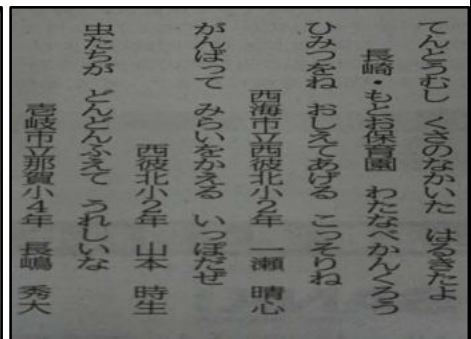 てんとうむし くさのなかいた はるきたよ
長崎・もとお保育園 わたなべかんくろう
ひみつをね おしえてあげる こっそりね
西海市立西彼北小2年 一瀬 晴心
がんばって みらいをかえる いっぽだぜ
西彼北小2年 山本 時生
虫たちが どんどんふえて うれしいな
壱岐市立那賀小4年 長嶋 秀大